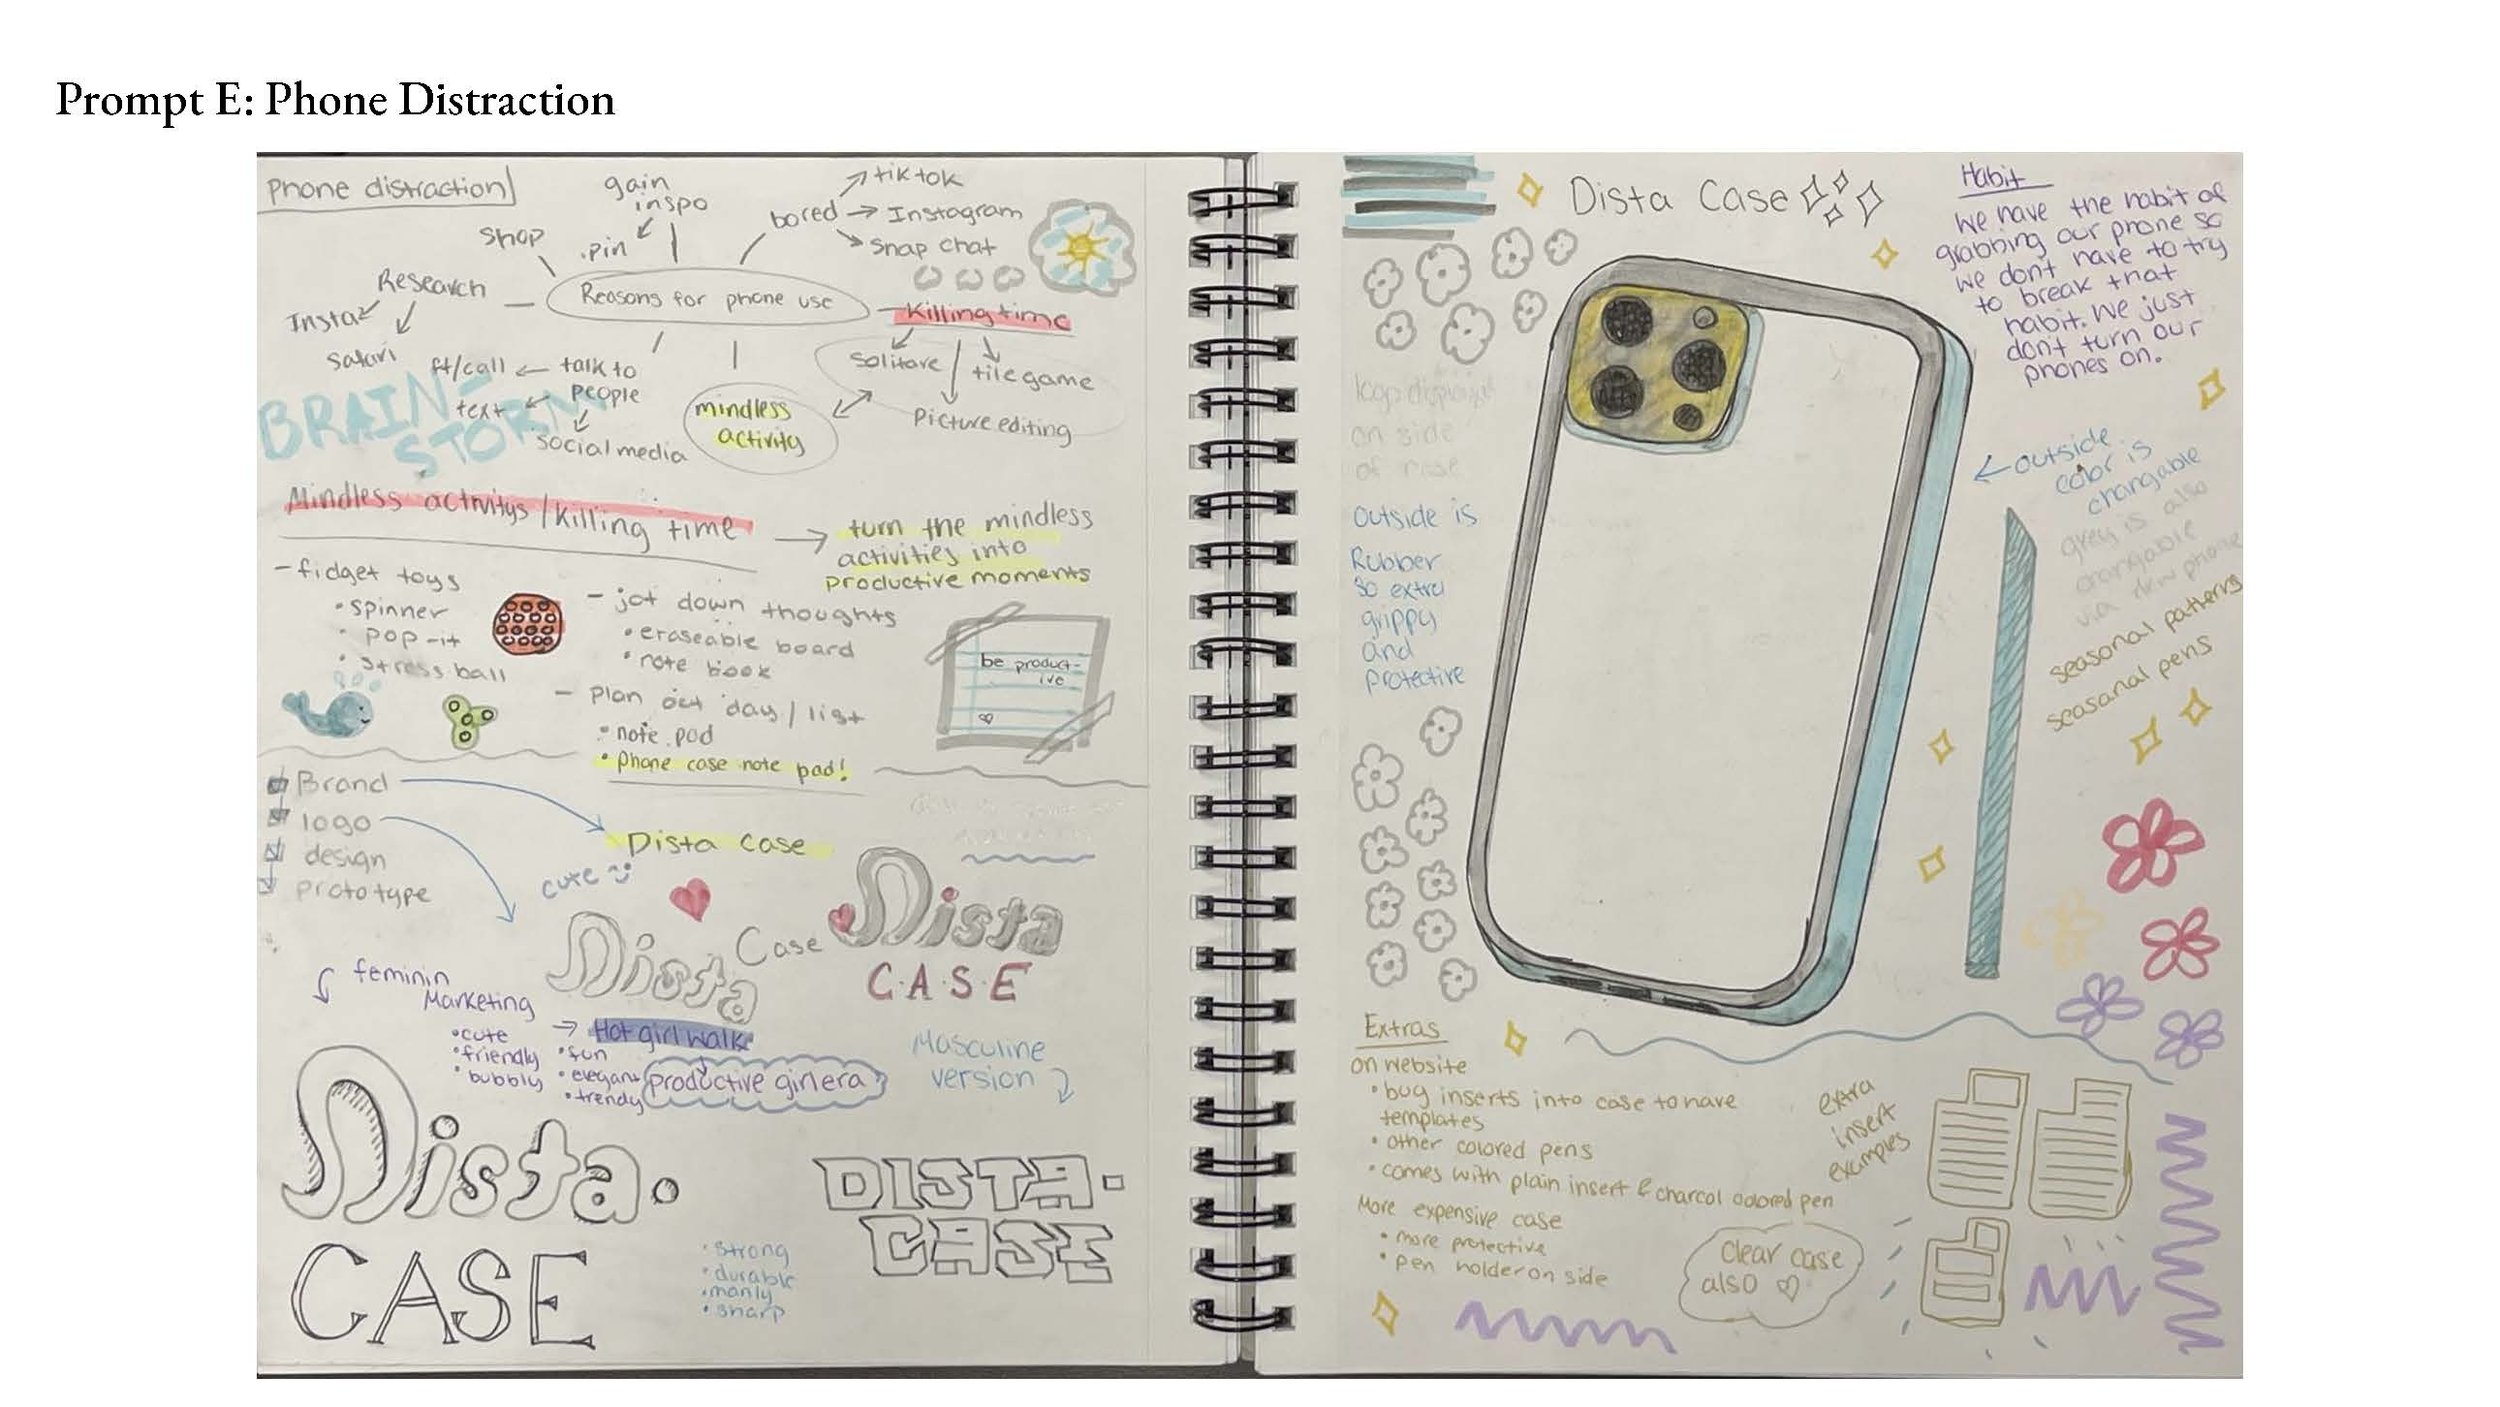 Prompt E: Phone Distraction
Phone distraction
gain
inspo
.pin
shop
Research
Insta
Safari
bored
tiktok
Instagram
Snap chat
Reasons for phone use
Killing time
Solitare
tile game
Picture editing
talk to
people
ft/call
text
social media
mindless
activity
BRAIN-
STORM
Mindless activitys/Killing time
turn the mindless
activities into
productive moments
- fidget toys
• spinner
• pop-it
• stress ball
- jot down thoughts
• eraseable board
• note book
- plan out day / list
• note pod
• phone case note pad!
be product-
ive
Brand
logo
design
prototype
Dista Case
cute
Dista Case
Dista
C.A.S.E
feminin
Marketing
• cute
• friendly
• bubbly
Hot girl walk
• fun
• elegant
• trendy
productive girl era
Masculine
version
Dista.
CASE
DISTA.
CASE
• strong
• durable
• manly
• sharp
Dista Case
Habit
We have the habit of
grabbing our phone so
we don't have to try
to break that
habit. We just
don't turn our
phones on.
on side
of case
outside is
Rubber
so extra
grippy
and
protective
outside
color is
changable
grey is also
changable
via new phone
seasonal patterns
seasonal pens
Extras
on website
• bug inserts into case to have
templates
• other colored pens
• comes with plain insert & charcol colored pen
More expensive case
• more protective
• pen holder on side
extra
insert
examples
clear case
also